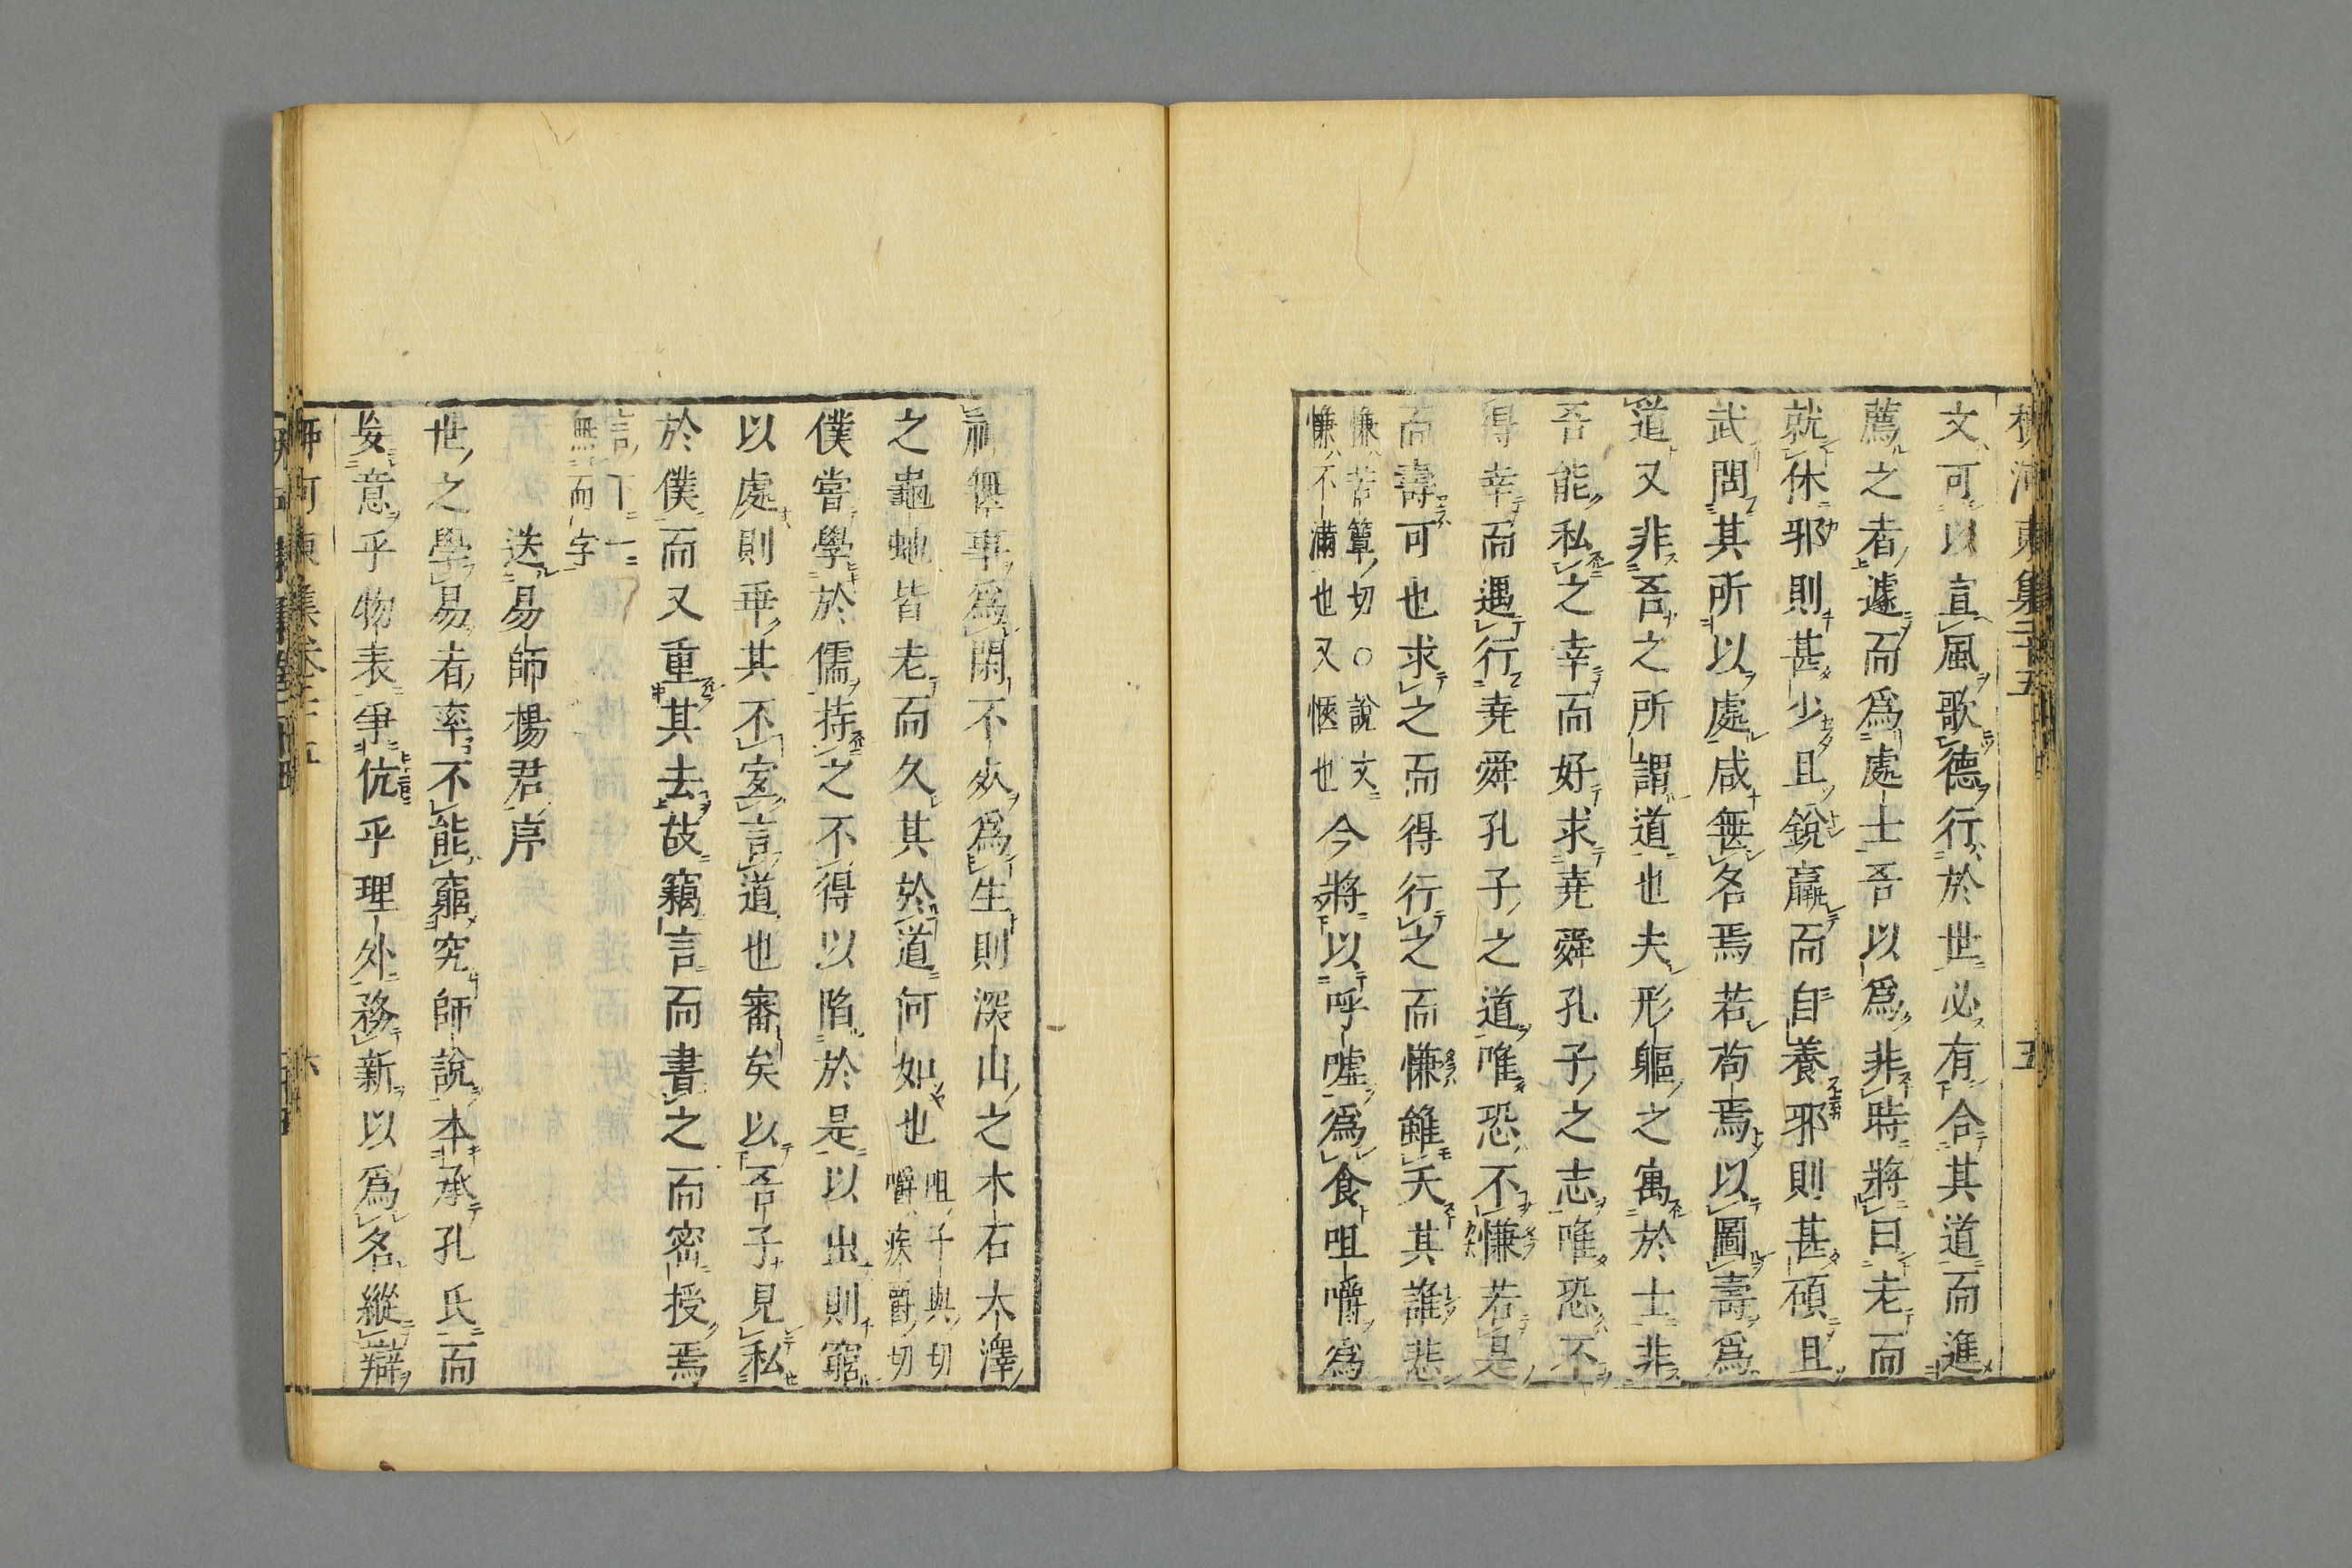 文可以宣風歌德行於世必有合其道而進
薦之者遽而爲處士吾以爲非時將曰老而
就休邪則甚少且銳羸而自養邪則甚碩且
武問其所以處咸無名焉若苟焉以圖壽爲
道又非吾之所謂道也夫形軀之寓於士非
吾能私之幸而好求堯舜孔子之志唯恐不
得幸而遇行堯舜孔子之道唯恐不慊若是
而壽可也求之而得行之而慊雖夭其誰悲
慊苦簟切○說文
慊不滿也又愜也
今將以呼噓爲食咀嚼爲
神無事爲閑不死爲生則深山之木石大澤
之龜蛇皆老而久其於道何如也
咀子與切
嚼疾爵切
僕嘗學於儒持之不得以陷於是以出則窮
以處則乖其不宜言道也審矣以吾子見私
於僕而又重其去故竊言而書之而密授焉
言下一
無而字
送易師楊君序
世之學易者率不能窮究師說本承孔氏而
妄意乎物表爭伉乎理外務新以爲名縱辯